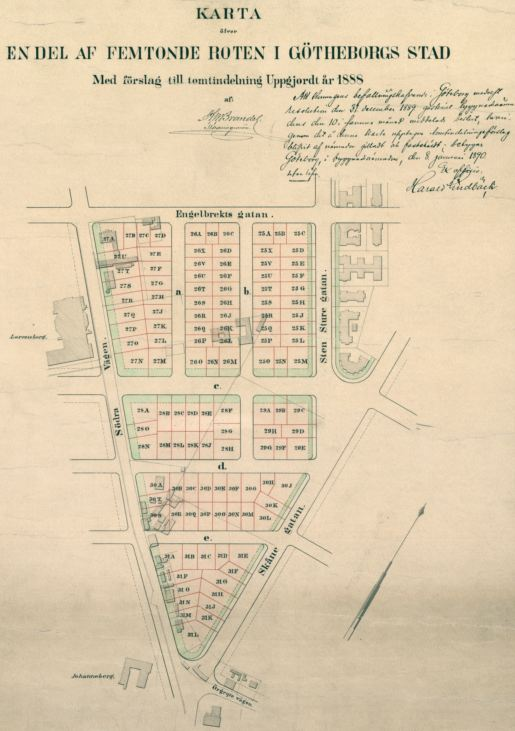 KARTA
öfver
EN DEL AF FEMTONDE ROTEN I GÖTHEBORGS STAD
Med förslag till tomtindelning Uppgjordt år 1888
af
Göteborg
resolution den 31 december 1889
den 10
denna karta
Göteborg, i byggnadsnämnden, den 8 januari 1890.
Ex officio
Harald Lindbäck
Engelbrekts gatan.
27A 27B 27C 27D
26A 26B 26C
25A 25B 25C
27U 27E
26X 26D
25X 25D
27T 27F
26V 26E
25V 25E
27S 27G
26U 26F
25U 25F
a. b.
26T 26G
25T 25G
27R 27H
26S 26H
25S 25H
27Q 27J
26R 26J
25R 25J
27P 27K
26Q 26K
25Q 25K
27O 27L
26P 26L
25P 25L
27N 27M
26O 26N 26M
25O 25N 25M
Sten Sture gatan.
Lorensberg.
Södra Vägen.
c.
28A 28B 28C 28D 28E 28F
29A 29B 29C
28O 28G
29H 29D
28N 28M 28L 28K 28J 28H
29G 29F 29E
d.
30A 30B 30C 30D 30E 30F 30G 30H 30J
30T 30K
30S 30R 30Q 30P 30O 30N 30M 30L
Skåne gatan.
e.
31A 31B 31C 31D 31E
31P 31F
31O 31G
31N 31H
31M 31J
31K
31L
Johanneberg.
Örgryte vägen.